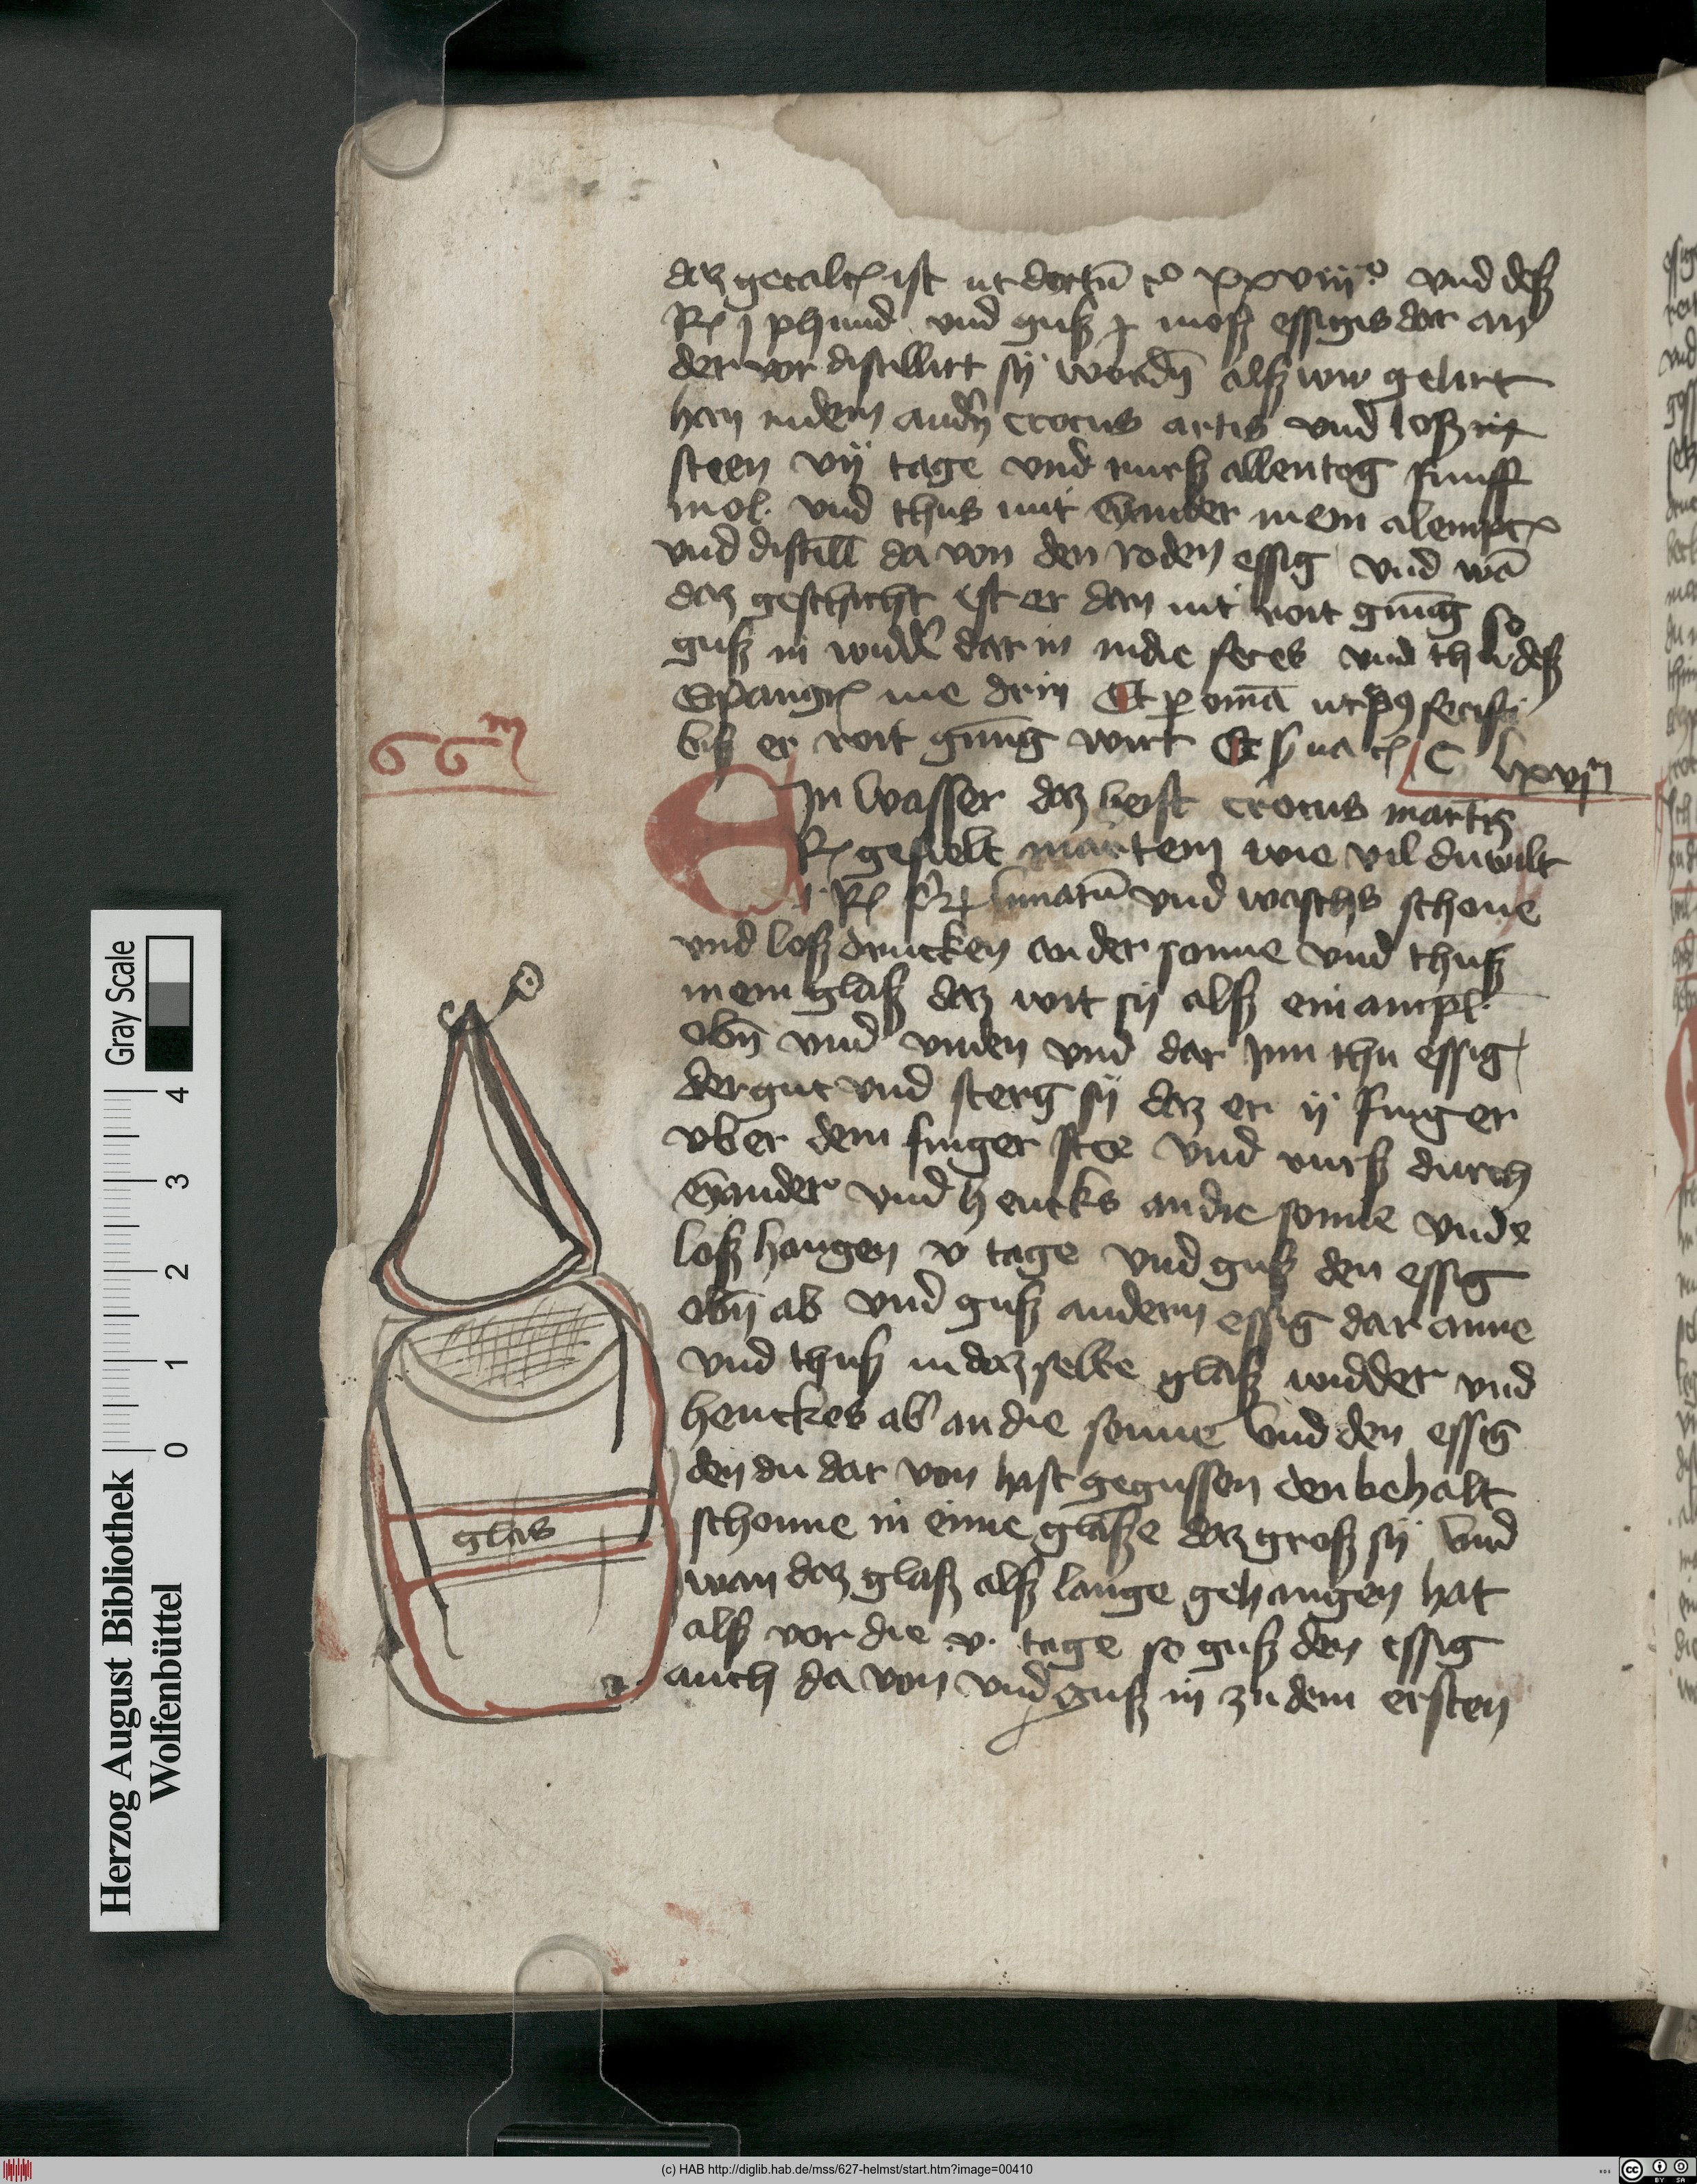 daz gecalc ist ut dectū c° xxviij° vnd deß
R j phund vnd guß mosß essigis dar an
der vor distillirt sy wordn alß wir gelirt
han in dem andn crocus artis vnd loß in
steen vij tage vnd rurß allen tog funff
mol. vnd thus mit einander in ein alempic
vnd distill da von den roden essig vnd wā
daz geschicht ist er dan nit roit gnūg so
guß in widd dar in in die feces vnd thu deß
Spangr me drin Et p omā ut pq fecisti
biß er roit gnūg wirt Et
66m
C lxvjm
Ein wasser daz heist crocus martis
R gefielt martem wie vil du wilt
R lunatū vnd waschs schone
vnd loß drucken an der sonne vnd thuß
in ein glaß daz wit sy alß ein ampl
obn vnd vnden vnd dar jnn thu essig
der gut vnd sterg sy daz er ij finger
vber dem finger stee vnd rurß durch
Einander vnd hencks an die sonne vnde
loß hangen v tage vnd guß den essig
obn ab vnd guß andern essig dar anne
vnd thuß in daz selbe glaß widder vnd
henckes ab an die sonne vnd den essig
den du dar von hast gegussen den behalt
schonne in einne glaße daz groß sy vnd
wan daz glaß alß lange gehangen hat
alß vor die .v. tage so guß den essig
auch da von vnd guß in zu dem ersten
glas
Herzog August Bibliothek
Wolfenbüttel
0 1 2 3 4
Gray Scale
(c) HAB http://diglib.hab.de/mss/627-helmst/start.htm?image=00410
cc BY SA